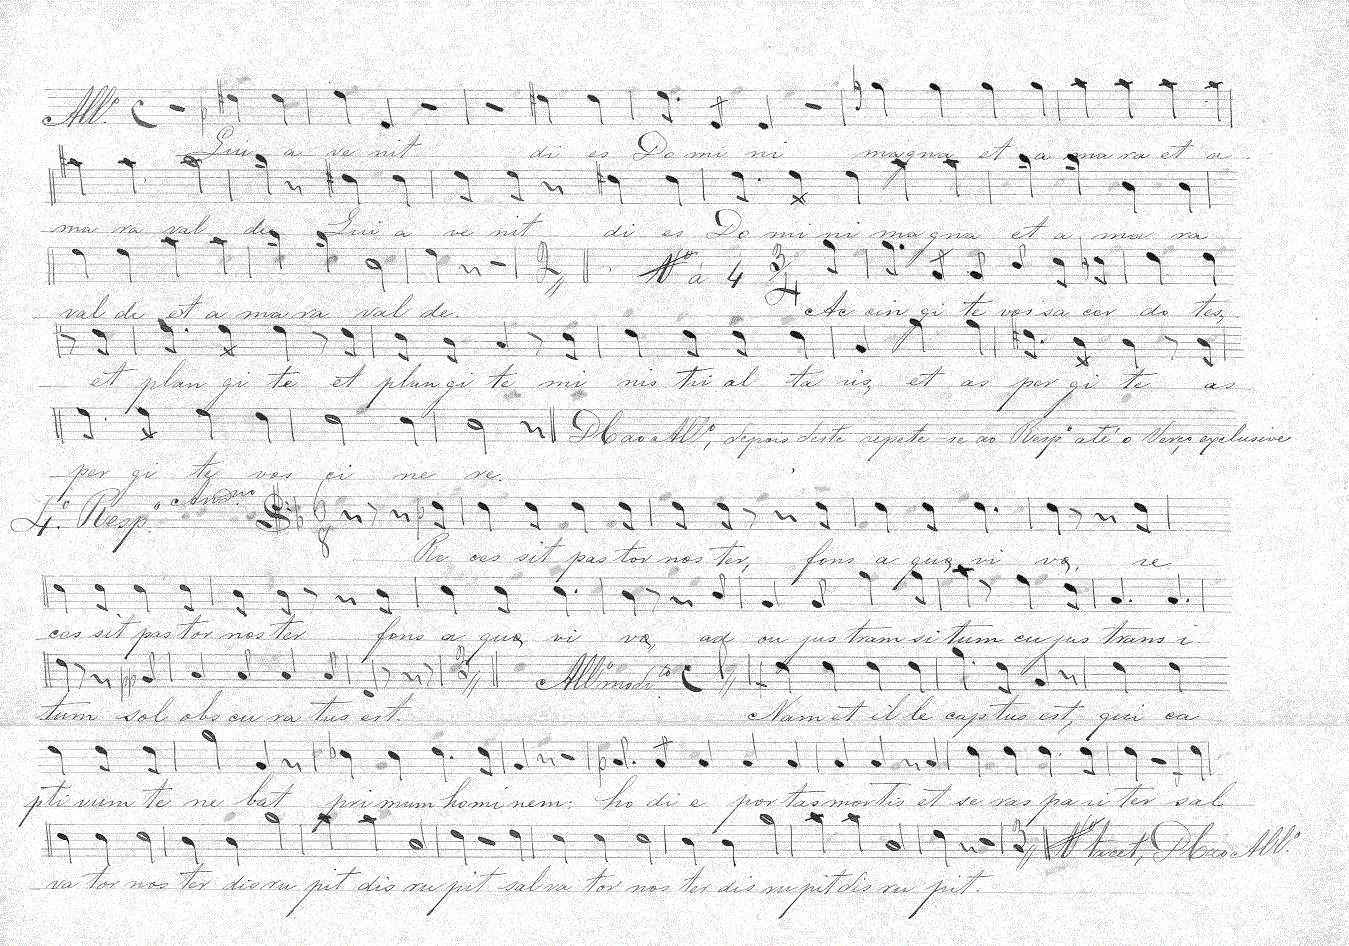 All.º C
Qui a ve nit di es Do mi ni magna et a ma ra et a
ma ra val de Qui a ve nit di es Do mi ni ma gna et a ma ra
Vº á 4 3/4
val de et a ma ra val de. Ac cin gi te vos sa cer do tes,
et plan gi te et plan gi te mi nis tri al ta ris, et as per gi te as
DC ao All.º, depois deste repete-se ao Resp.º até o Verso exclusive
per gi te vos ci ne re.
4.º Resp.º Andno 6/8
Re ces sit pas tor nos ter, fons a quæ vi væ, re
ces sit pas tor nos ter fons a quæ vi væ, ad cu jus tram si tum cu jus trans i
All.º modto C
tum sol obs cu ra tus est. Nam et il le cap tus est, qui ca
pti vum te ne bat pri mum hominem: ho di e por tas mortis et se ras pa ri ter sal
Vº tacet, DC ao All.º
va tor nos ter dis ru pit dis ru pit sal va tor nos ter dis ru pit dis ru pit.